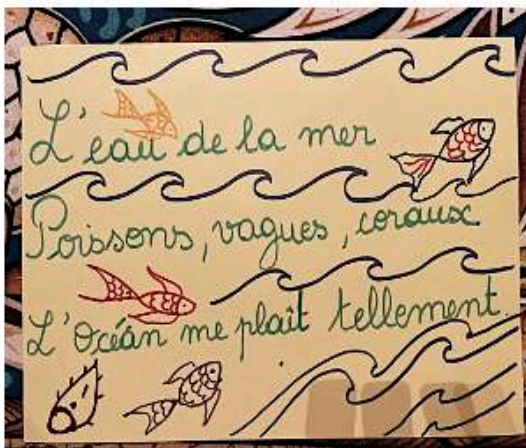 L'eau de la mer
Poissons, vagues, coraux
L'Océan me plaît tellement.